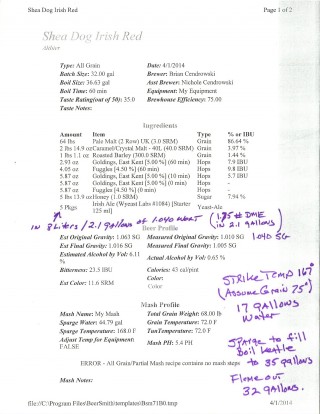 Shea Dog Irish Red Page 1 of 2
Shea Dog Irish Red
Type: All Grain Date: 4/1/2014
Batch Size: 32.00 gal Brewer: Brian Cendrowski
Boil Size: 36.63 gal Asst Brewer: Nichole Cendrowski
Boil Time: 60 min Equipment: My Equipment
Taste Rating(out of 50): 35.0 Brewhouse Efficiency: 75.00
Taste Notes:
Ingredients
Amount Item Type % or IBU
64 lbs Pale Malt (2 Row) UK (3.0 SRM) Grain 86.64 %
2 lbs 14.9 oz Caramel/Crystal Malt - 40L (40.0 SRM) Grain 3.97 %
1 lbs 1.1 oz Roasted Barley (300.0 SRM) Grain 1.44 %
2.93 oz Goldings, East Kent [5.00 %] (60 min) Hops 7.9 IBU
4.05 oz Goldings, East Kent [5.00 %] (60 min) Hops
5.87 oz Goldings, East Kent [5.00 %] (10 min) Hops 5.7 IBU
5.87 oz Goldings, East Kent [5.00 %] (0 min) Hops -
5.87 oz Goldings, East Kent [5.00 %] Hops -
5 lbs 13.9 oz Honey (1.0 SRM) Sugar 7.94 %
5 Pkgs Irish Ale (Wyeast Labs #1084) [Starter 125 ml] Yeast-Ale
in 8 Liters / 2.1 gallons of 1.040 wort (1.75 # DME in 2.1 gallons)
Beer Profile
Est Original Gravity: 1.063 SG Measured Original Gravity: 1.010 SG 1.040 SG
Est Final Gravity: 1.016 SG Measured Final Gravity: 1.005 SG
Estimated Alcohol by Vol: 6.11 % Actual Alcohol by Vol: 0.65 %
Bitterness: 23.5 IBU Calories: 43 cal/pint
Est Color: 11.6 SRM Color:
Color
Strike Temp 167°
(Assume Grain 75°)
17 gallons
Water
Mash Profile
Mash Name: My Mash Total Grain Weight: 68.00 lb
Sparge Water: 44.79 gal Grain Temperature: 72.0 F
Sparge Temperature: 168.0 F TunTemperature: 72.0 F
Adjust Temp for Equipment: FALSE Mash PH: 5.4 PH
Sparge to fill
Boil kettle
to 35 gallons
ERROR - All Grain/Partial Mash recipe contains no mash steps
Flame out
32 gallons.
Mash Notes:
file://C:\Program Files\BeerSmith\templates\Bsm71B0.tmp 4/1/2014